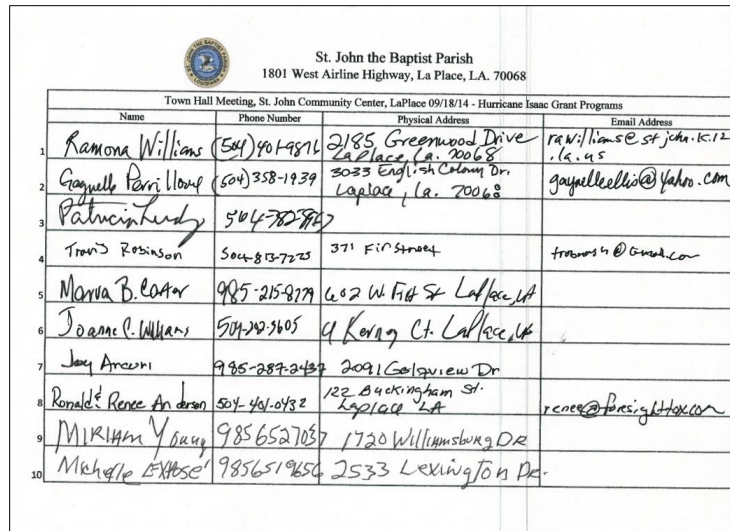 St. John the Baptist Parish
1801 West Airline Highway, La Place, LA. 70068
Town Hall Meeting, St. John Community Center, LaPlace 09/18/14 - Hurricane Isaac Grant Programs
Name Phone Number Physical Address Email Address
1 Ramona Williams (504)401-9876 2185 Greenwood Drive rawilliams@stjohn.k.12
LaPlace, La. 70068 .la.us
2 (504)358-1939 3033 English Colony Dr.
Laplace, La. 70068 gaynelleellis@yahoo.com
3 Patricia
4 Travis Robinson 504-813-7225 371 Fir Street
5 Marva B. Carter 985-215-8779 602 W. St LaPlace, LA
6 Joanne C. Williams Ct. LaPlace, LA
7 Joy Arcuri 985-287-2437 2091 Golfview Dr
8 Ronald & Renee Anderson 504-401-0432 122 Buckingham St.
Laplace LA
9 MIRIAM Young 9856527037 1720 Williamsburg DR
10 Michelle 9856519656 2533 Lexington DR.